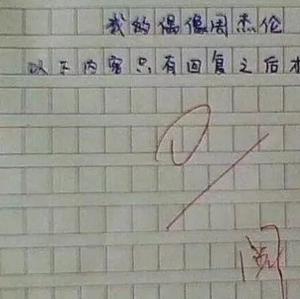 我的偶像周杰伦
以下内容只有回复之后才
阅